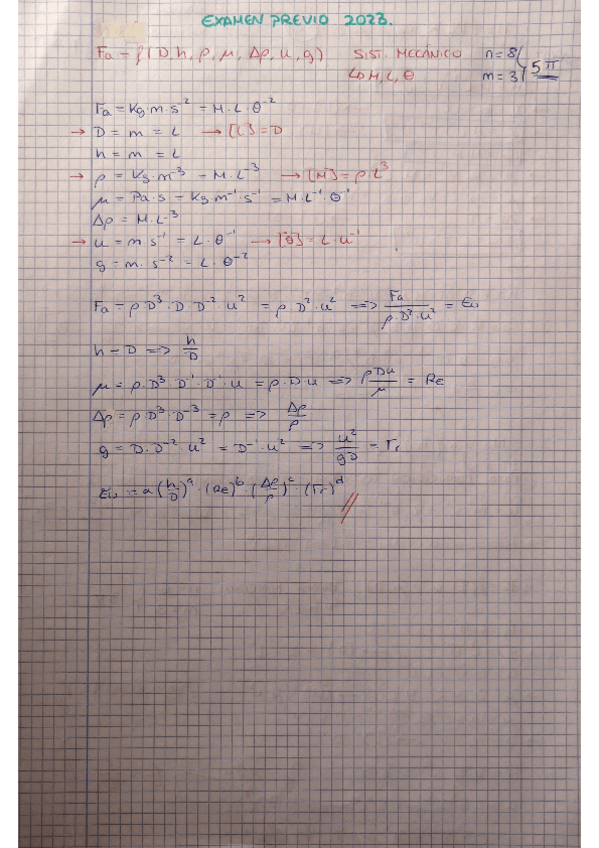 EXAMEN PREVIO 2023.
Fa = f (D, h, ρ, μ, Δρ, u, g) SIST. MECÁNICO n=8
↳ M, L, θ m=3 5π
Fa = Kg·m·s⁻² = M·L·θ⁻²
→ D = m = L → [L] = D
h = m = L
→ ρ = Kg·m⁻³ = M·L⁻³ → [M] = ρ·L³
μ = Pa·s = Kg·m⁻¹·s⁻¹ = M·L⁻¹·θ⁻¹
Δρ = M·L⁻³
→ u = m·s⁻¹ = L·θ⁻¹ → [θ] = L·u⁻¹
g = m·s⁻² = L·θ⁻²
Fa = ρ·D³·D·D⁻²·u² = ρ·D²·u² => Fa/(ρ·D²·u²) = Eu
h = D => h/D
μ = ρ·D³·D⁻¹·D⁻¹·u = ρ·D·u => ρDu/μ = Re
Δρ = ρ·D³·D⁻³ = ρ => Δρ/ρ
g = D·D⁻²·u² = D⁻¹·u² => u²/gD = Fr
Eu = a (h/D)ᵃ · (Re)ᵇ · (Δρ/ρ)ᶜ · (Fr)ᵈ